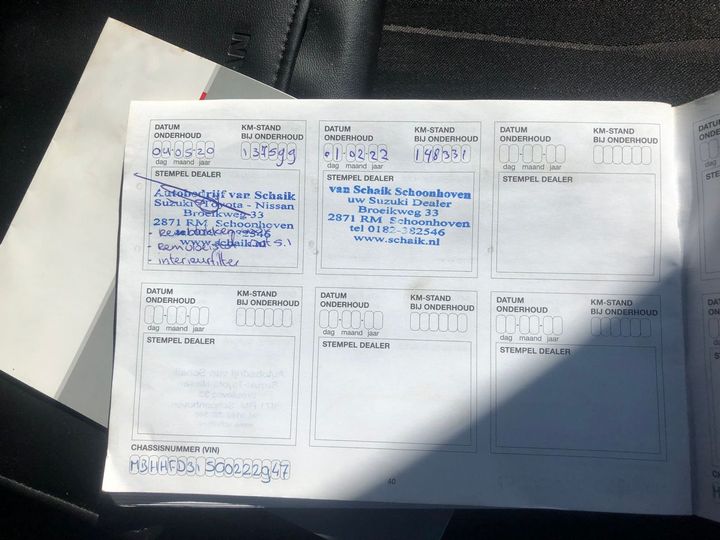 DATUM ONDERHOUD
KM-STAND BIJ ONDERHOUD
04-05-20
137599
dag maand jaar
STEMPEL DEALER
Autobedrijf van Schaik
Suzuki Toyota - Nissan
Broeikweg 33
2871 RM Schoonhoven
www.schaik.nl
- interieurfilter
DATUM ONDERHOUD
KM-STAND BIJ ONDERHOUD
01-02-22
148331
dag maand jaar
STEMPEL DEALER
van Schaik Schoonhoven
uw Suzuki Dealer
Broeikweg 33
2871 RM Schoonhoven
tel 0182-382546
www.schaik.nl
DATUM ONDERHOUD
KM-STAND BIJ ONDERHOUD
dag maand jaar
STEMPEL DEALER
DATUM ONDERHOUD
KM-STAND BIJ ONDERHOUD
dag maand jaar
STEMPEL DEALER
DATUM ONDERHOUD
KM-STAND BIJ ONDERHOUD
dag maand jaar
STEMPEL DEALER
DATUM ONDERHOUD
KM-STAND BIJ ONDERHOUD
dag maand jaar
STEMPEL DEALER
CHASSISNUMMER (VIN)
MBHHFD31S00222947
40